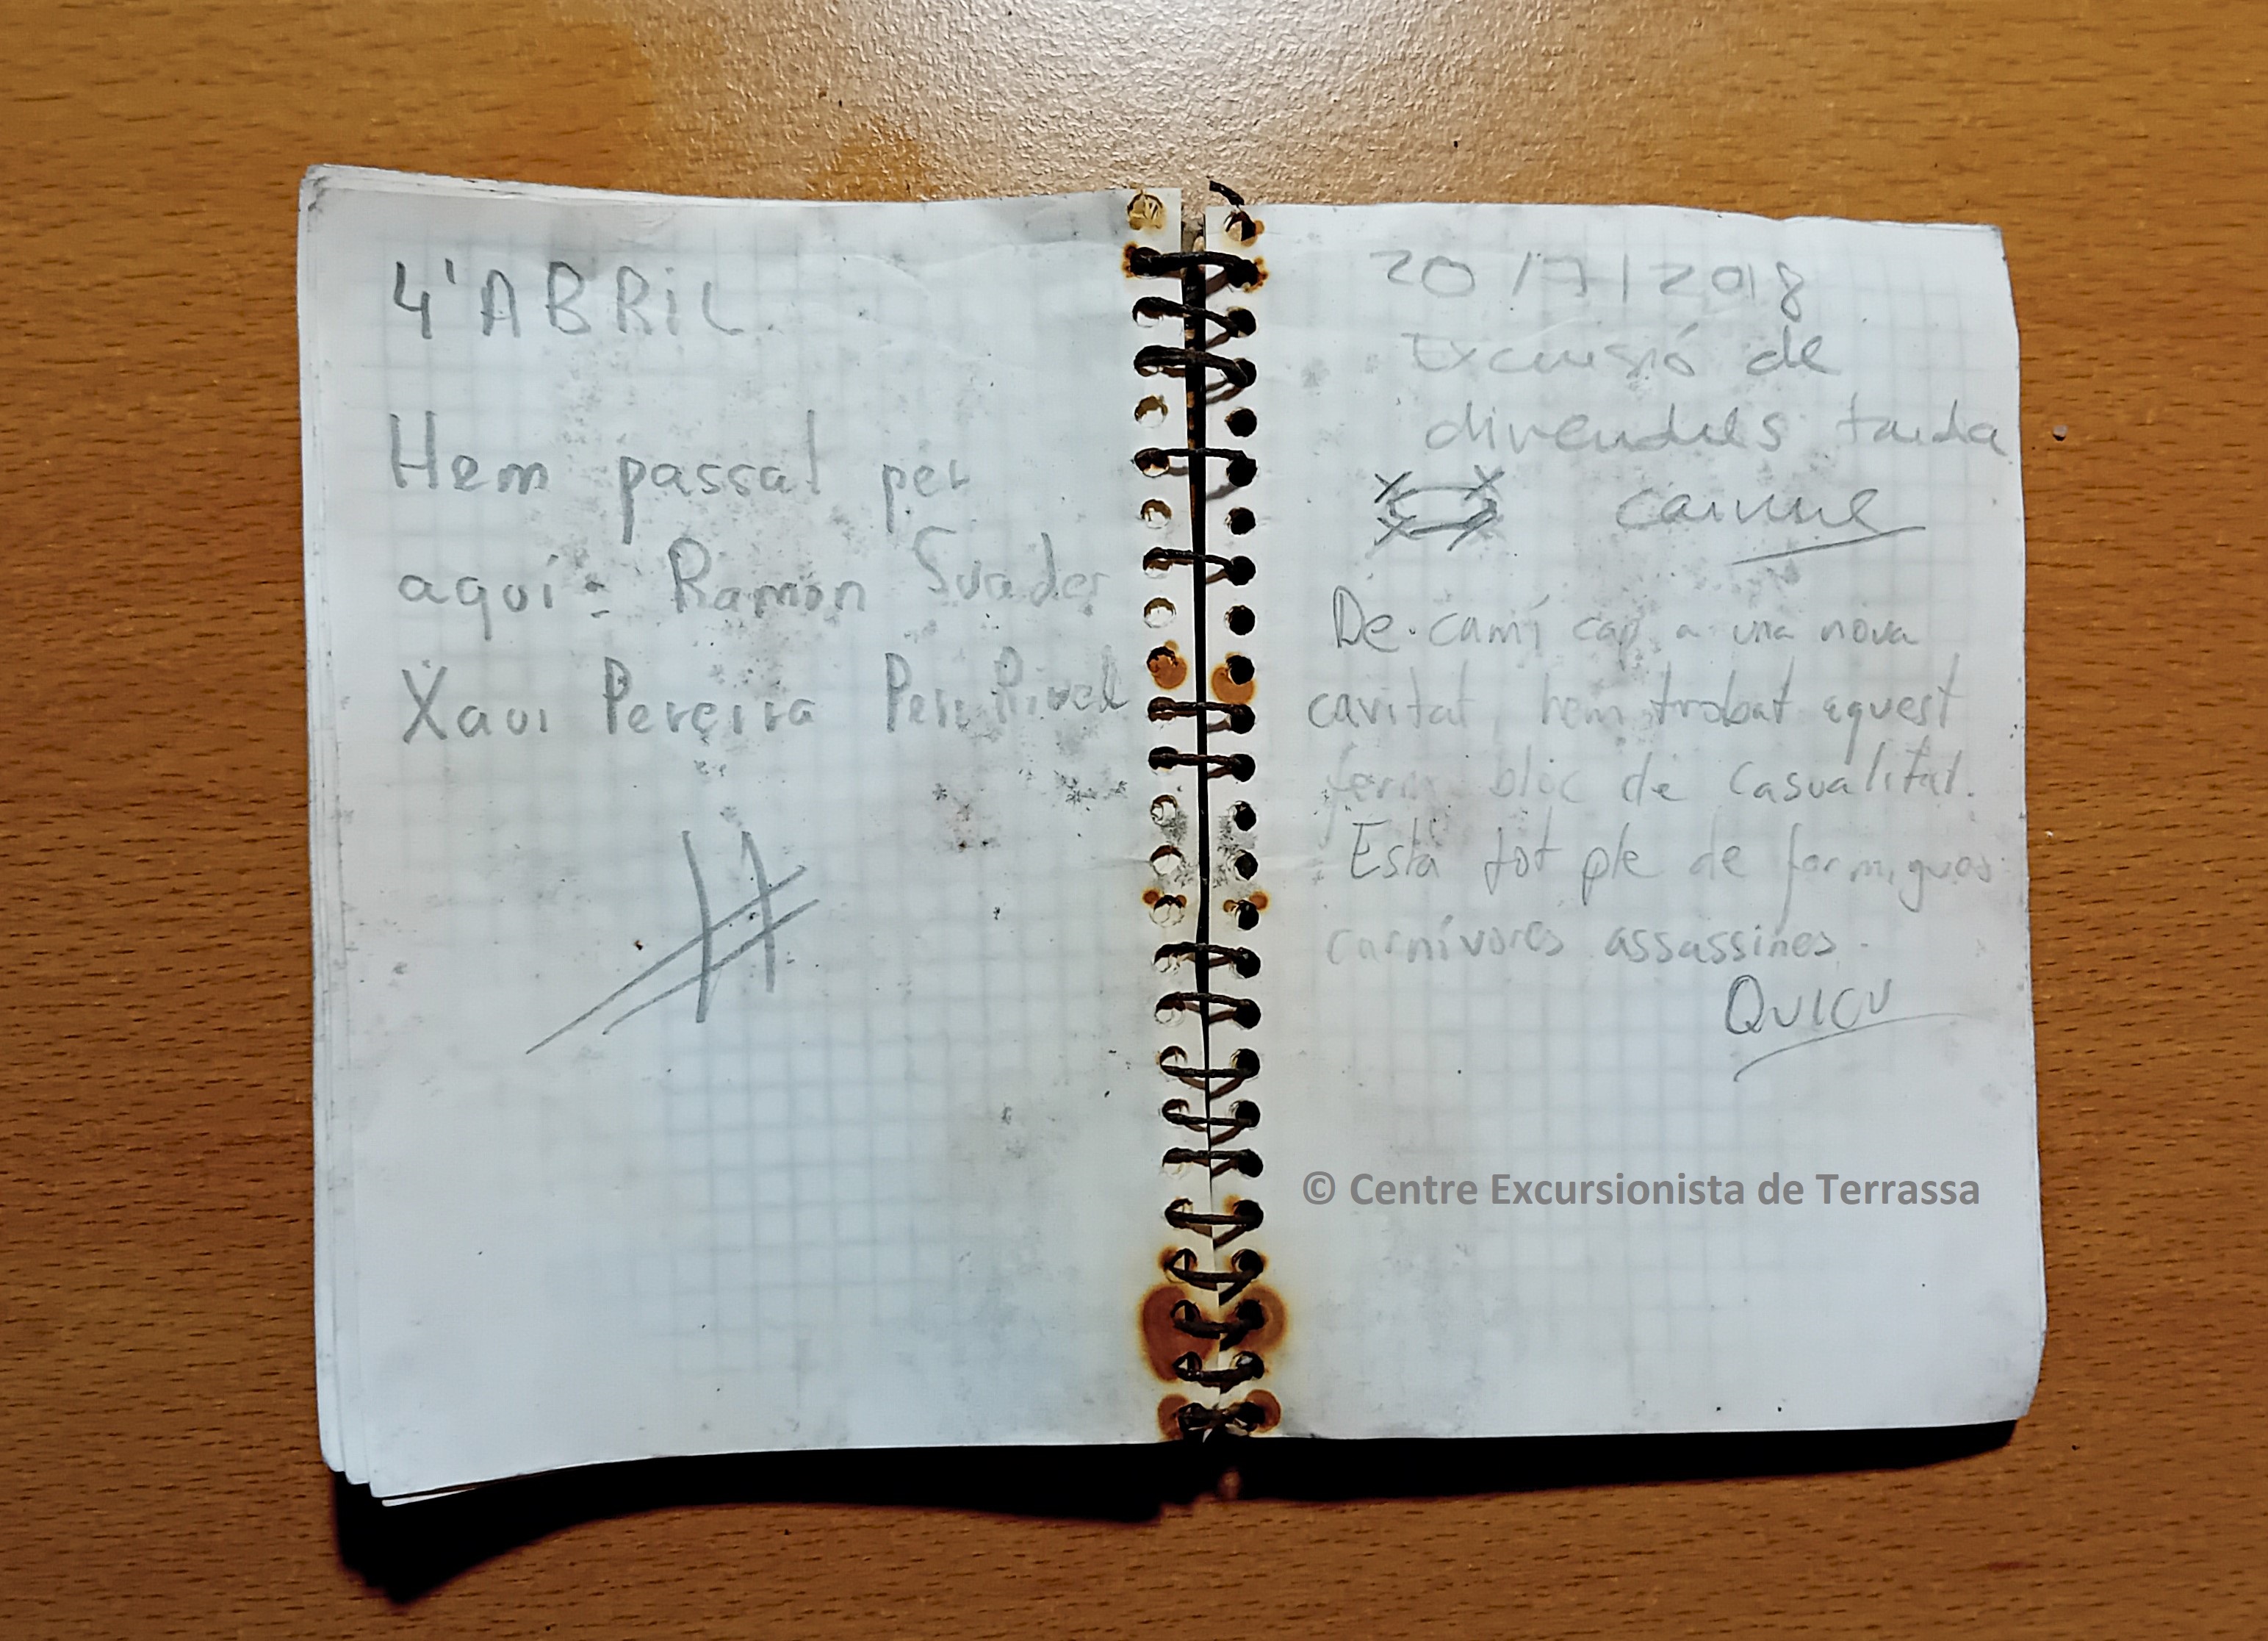 4'ABRiL
Hem passat per
aquí: Ramon Suades
Xavi Pereira Pere
20/7/2018
Excursió de
divendres tarda
carme
De camí cap a una nova
cavitat, hem trobat aquest
ferm bloc de casualitat.
Està tot ple de formigues
carnívores assassines.
QUICU
© Centre Excursionista de Terrassa